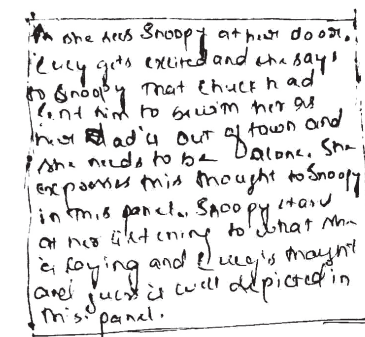 As she sees Snoopy at her door.
Lucy gets excited and she says
to Snoopy that Chuck had
sent him to be with her as
her dad is out of town and
she needs to be alone. She
expresses this thought to Snoopy
in this panel. Snoopy stare
at her listening to what she
is saying and thought
and is well depicted in
this panel.